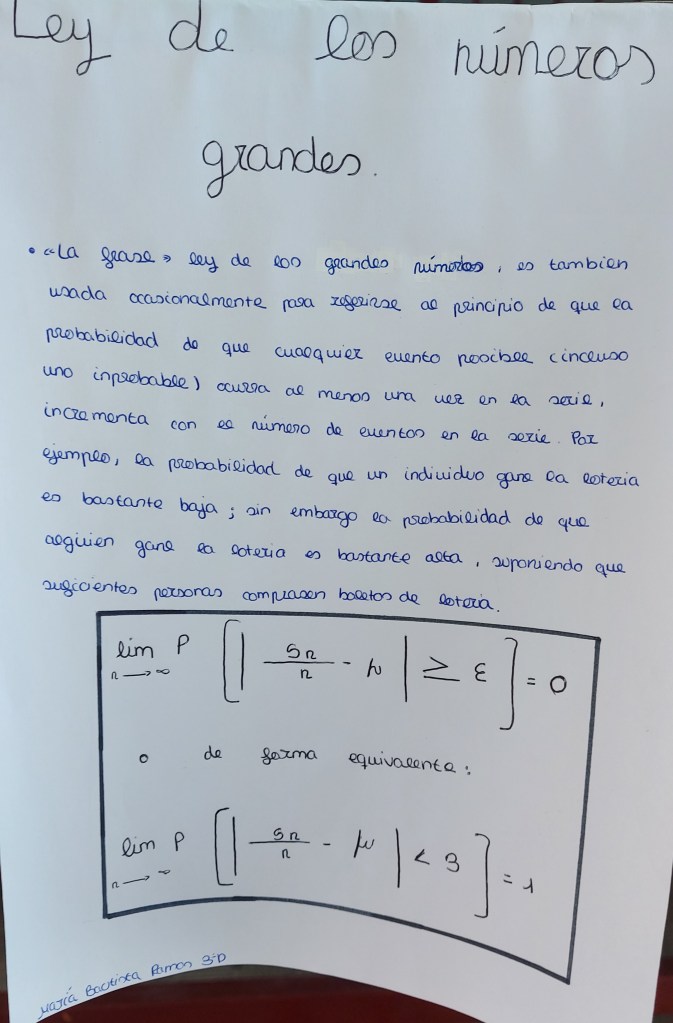 Ley de los números
grandes.
• «La frase» ley de los grandes números, es tambien
usada ocasionalmente para referirse al principio de que la
probabilidad de que cualquier evento posible (incluso
uno inprobable) ocurra al menos una vez en la serie,
incrementa con el número de eventos en la serie. Por
ejemplo, la probabilidad de que un individuo gane la loteria
es bastante baja; sin embargo la probabilidad de que
alguien gane la loteria es bastante alta, suponiendo que
suficientes personas comprasen boletos de loteria.
lim P [| Sn/n - μ | ≥ ε] = 0
n → ∞
o de forma equivalente:
lim P [| Sn/n - μ | < 3] = 1
n → ∞
María Bautista Ramos 3ºD